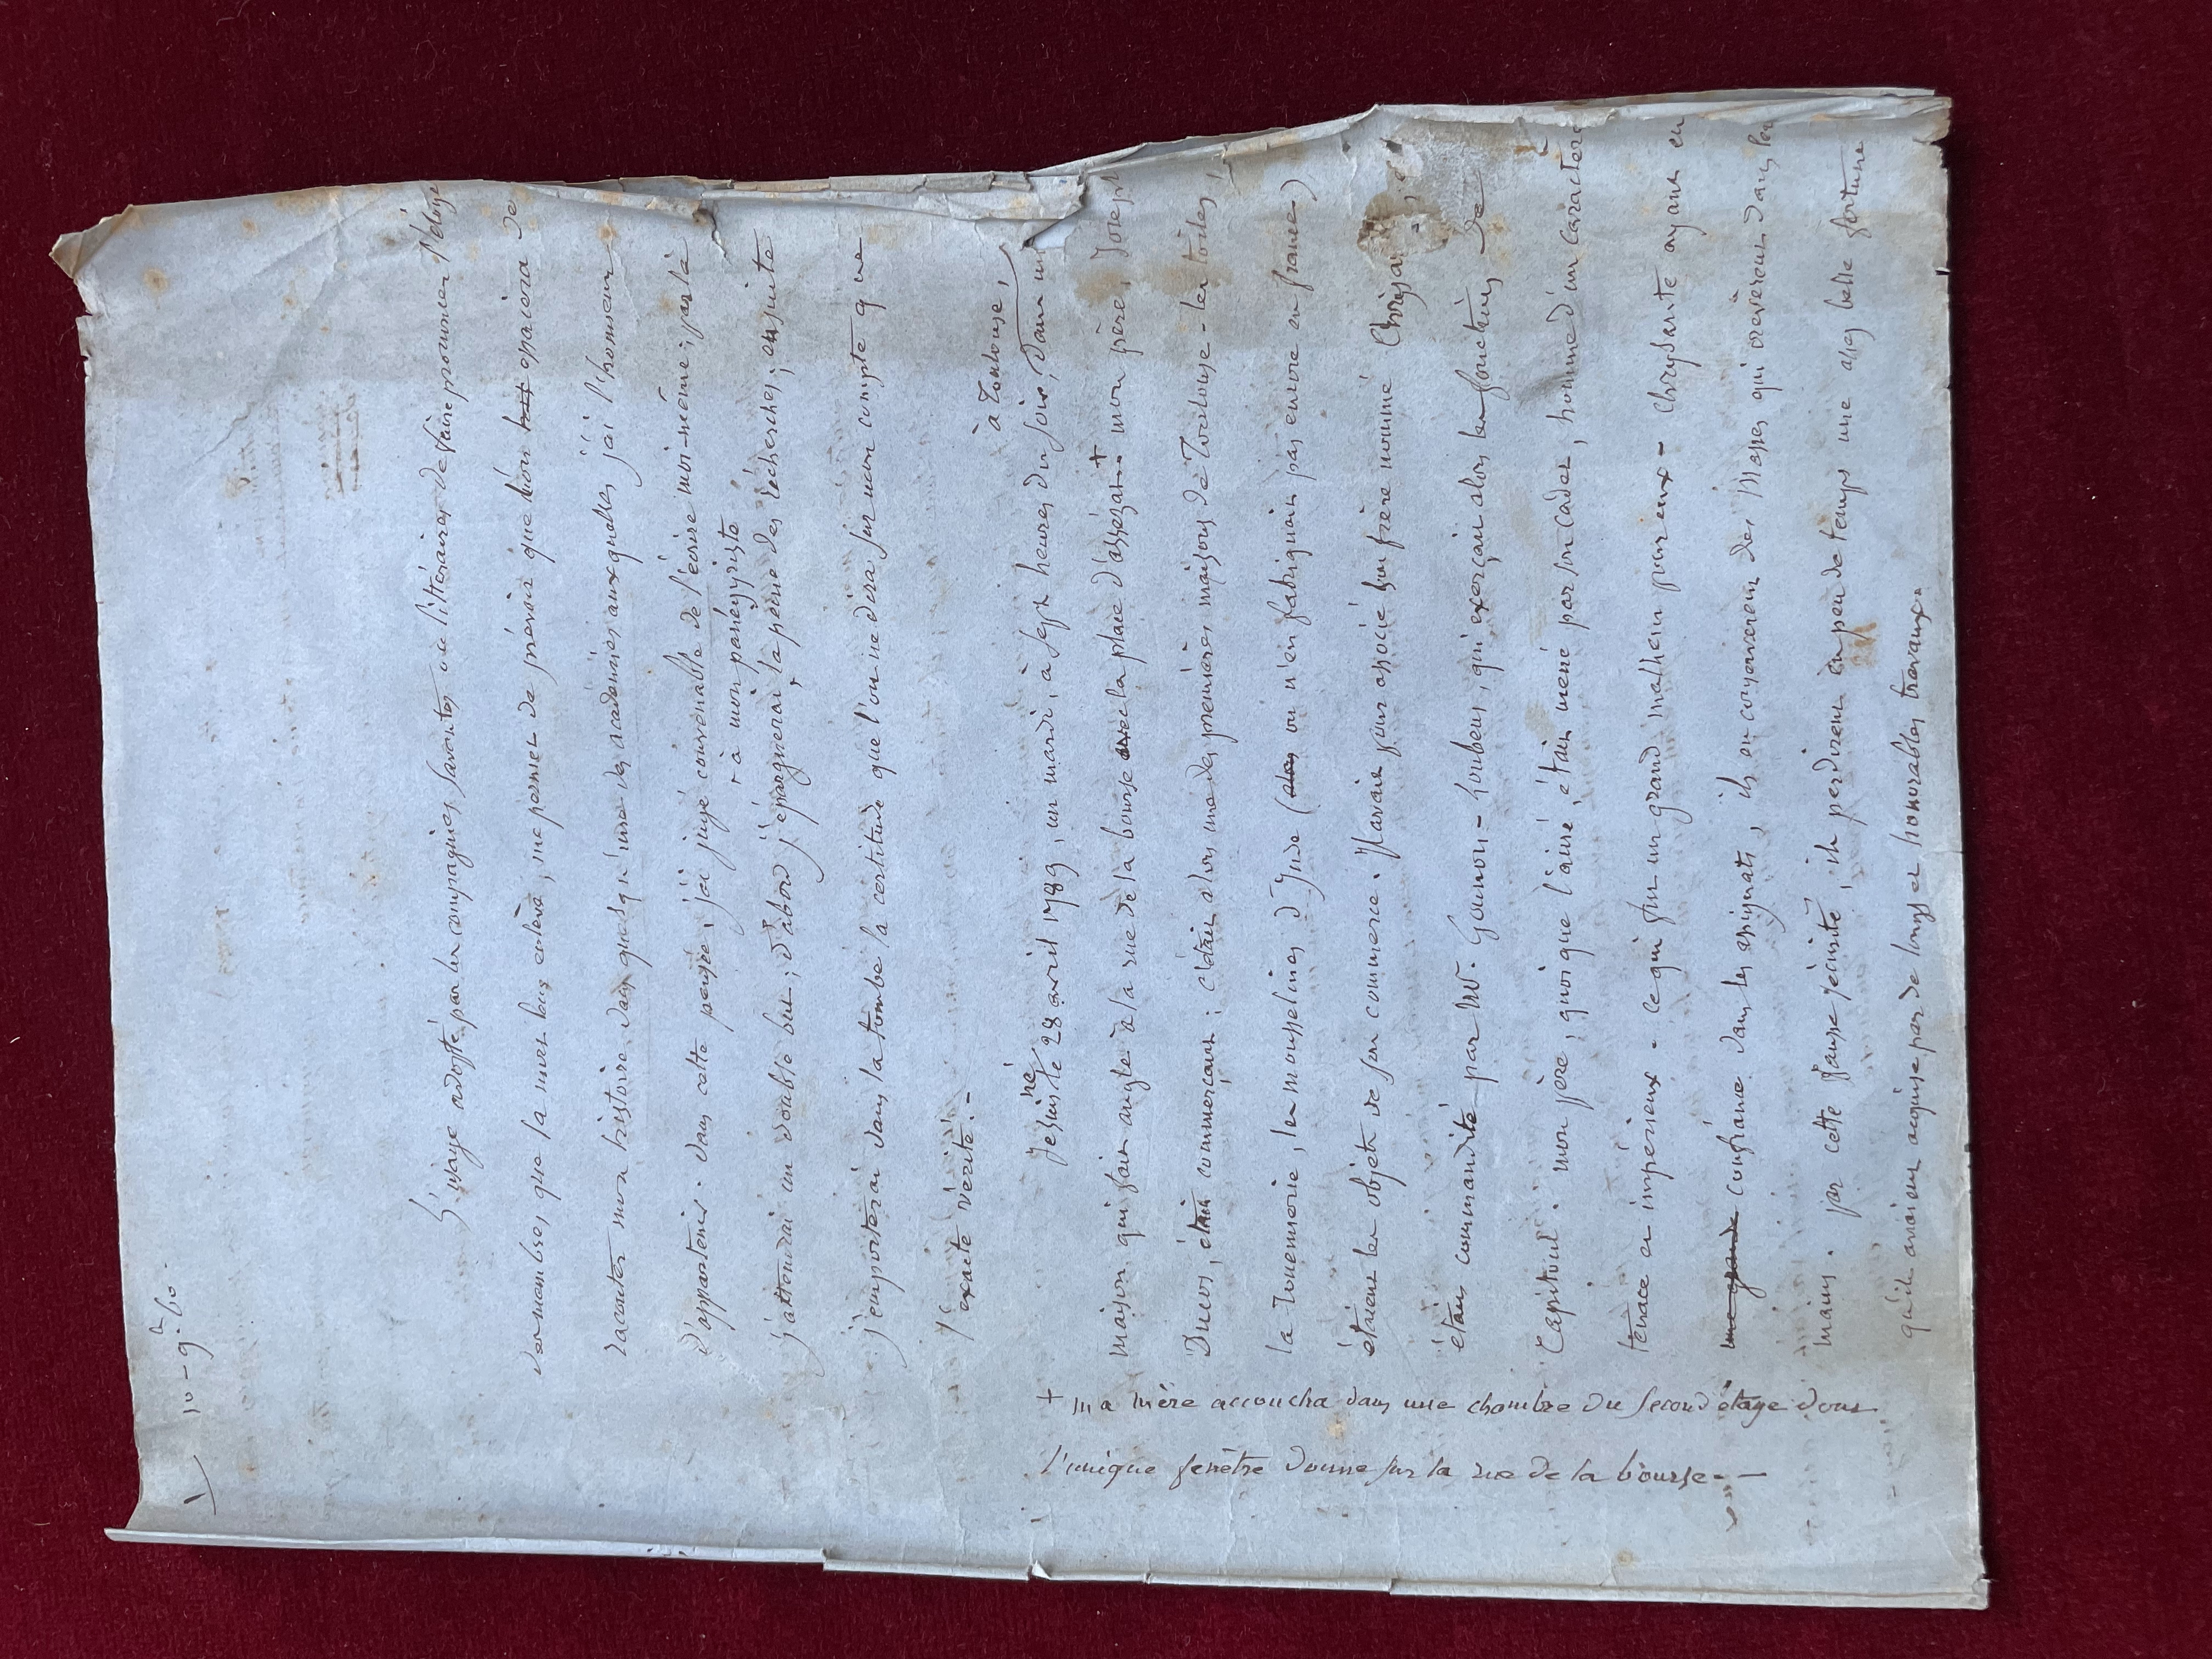 10 - 9.bre 60.
L'usage adopté par les compagnies savantes ou littéraires de faire prononcer l'éloge
des membres que la mort leur enlève, me permet de prévoir que l'on essaiera de
raconter mon histoire dans quelqu'une des académies auxquelles j'ai l'honneur
d'appartenir. dans cette pensée, j'ai jugé convenable de l'écrire moi-même; par là
j'atteindrai un double but; d'abord j'épargnerai à mon panégyriste la peine des recherches; ensuite
j'emporterai dans la tombe la certitude que l'on ne dira sur mon compte que
l'exacte vérité. -
Je suis né le 28 avril 1789, un mardi, à sept heures du soir, à Toulouse, dans un
maison qui fait angle à la rue de la bourse avec la place d'assézat. + mon père, Josep
Ducos, était commerçant; c'était alors une des premières maisons de Toulouse - les toiles,
la rouennerie, les mousselines d'Inde (alors on n'en fabriquait pas encore en france)
étaient les objets de son commerce. Il avait pour associé son frère nommé
était commandité par Mr. Gounon-Loubens, qui exerçait alors les fonctions de
Capitoul. mon père, quoique l'aîné, était mené par son cadet, homme d'un caractère
tenace et impérieux - ce qui fut un grand malheur pour eux - Chrysante ayant eu
une grande confiance dans les assignats, ils en conservèrent des masses qui crevèrent dans leu
mains. par cette fausse sécurité, ils perdirent en peu de temps une assez belle fortune
qu'ils avaient acquise par de longs et honorables travaux.
+ ma mère accoucha dans une chambre du second étage dont
l'unique fenêtre donne sur la rue de la bourse. -